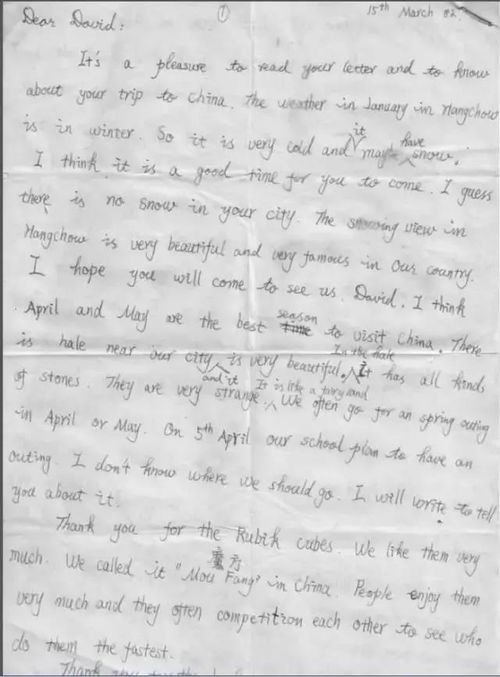 ①
15th March 82.
Dear David:
It's a pleasure to read your letter and to know
about your trip to China. The weather in January in Hangchow
is in winter. So it is very cold and it may have snow.
I think it is a good time for you to come. I guess
there is no snow in your city. The snowing view in
Hangchow is very beautiful and very famous in Our country.
I hope you will come to see us. David. I think
April and May are the best season to visit China. There
is hale near our city and it is very beautiful. In the hale It has all kinds
of stones. They are very strange. It is like a fairy land We often go for an spring outing
in April or May. On 5th April our school plan to have an
outing. I don't know where we should go. I will write to tell
you about it.
Thank you for the Rubik cubes. We like them very
much. We called it "Mou Fang" 魔方 in China. People enjoy them
very much and they often competition each other to see who
do them the fastest.
Thank you